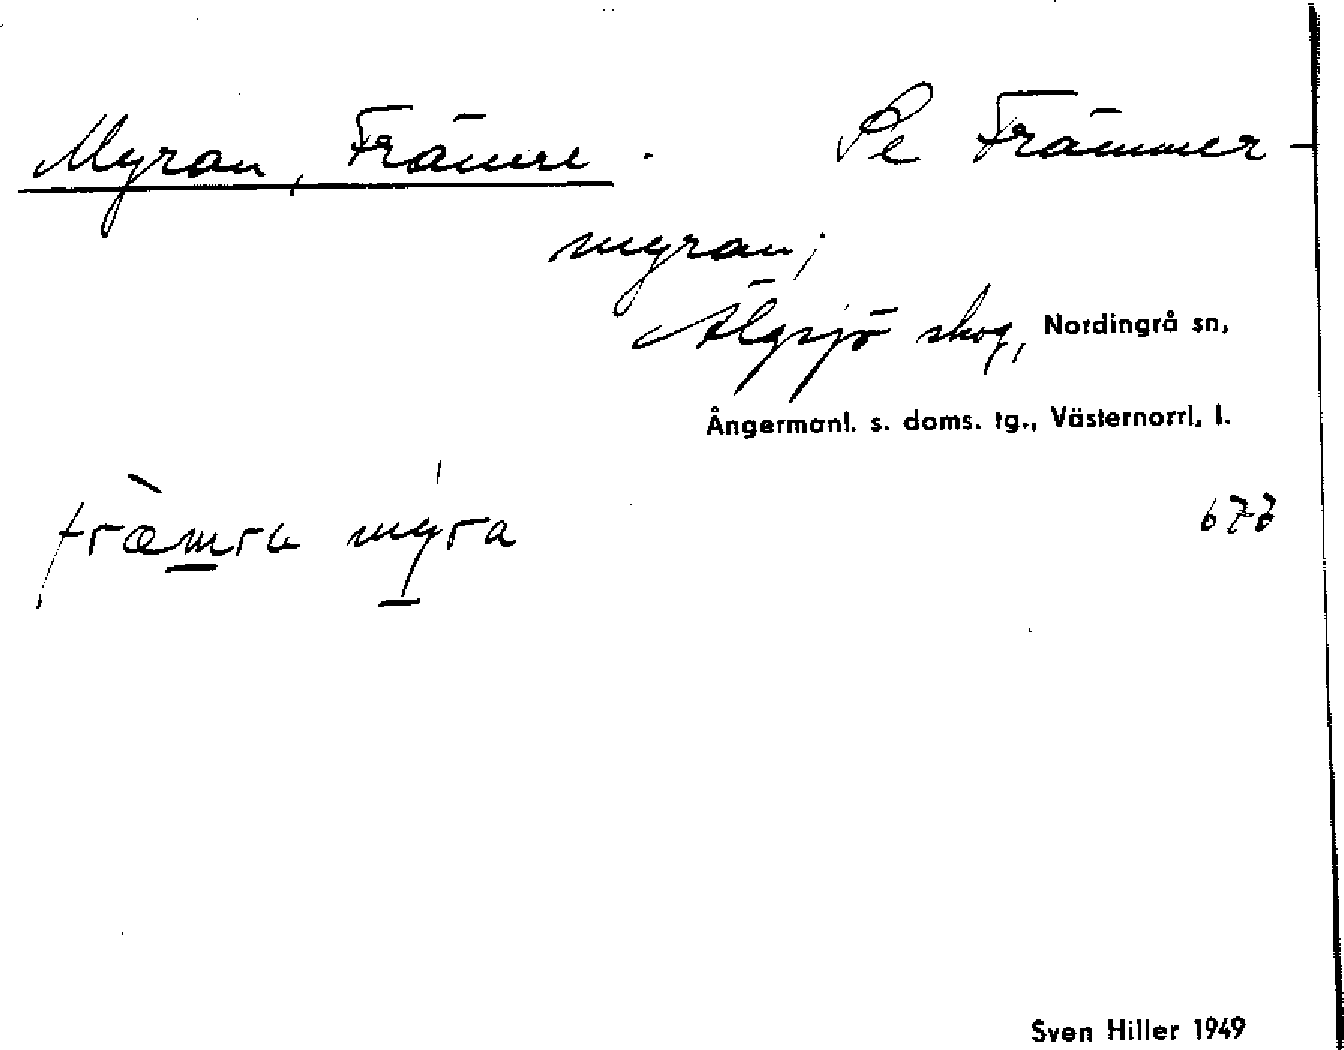 Myran, Främre. Se Främmer-
myran;
Älgsjö skog, Nordingrå sn,
Ångermanl. s. doms. tg., Västernorrl. l.
fræ̀mra my̍ra
677
Sven Hiller 1949